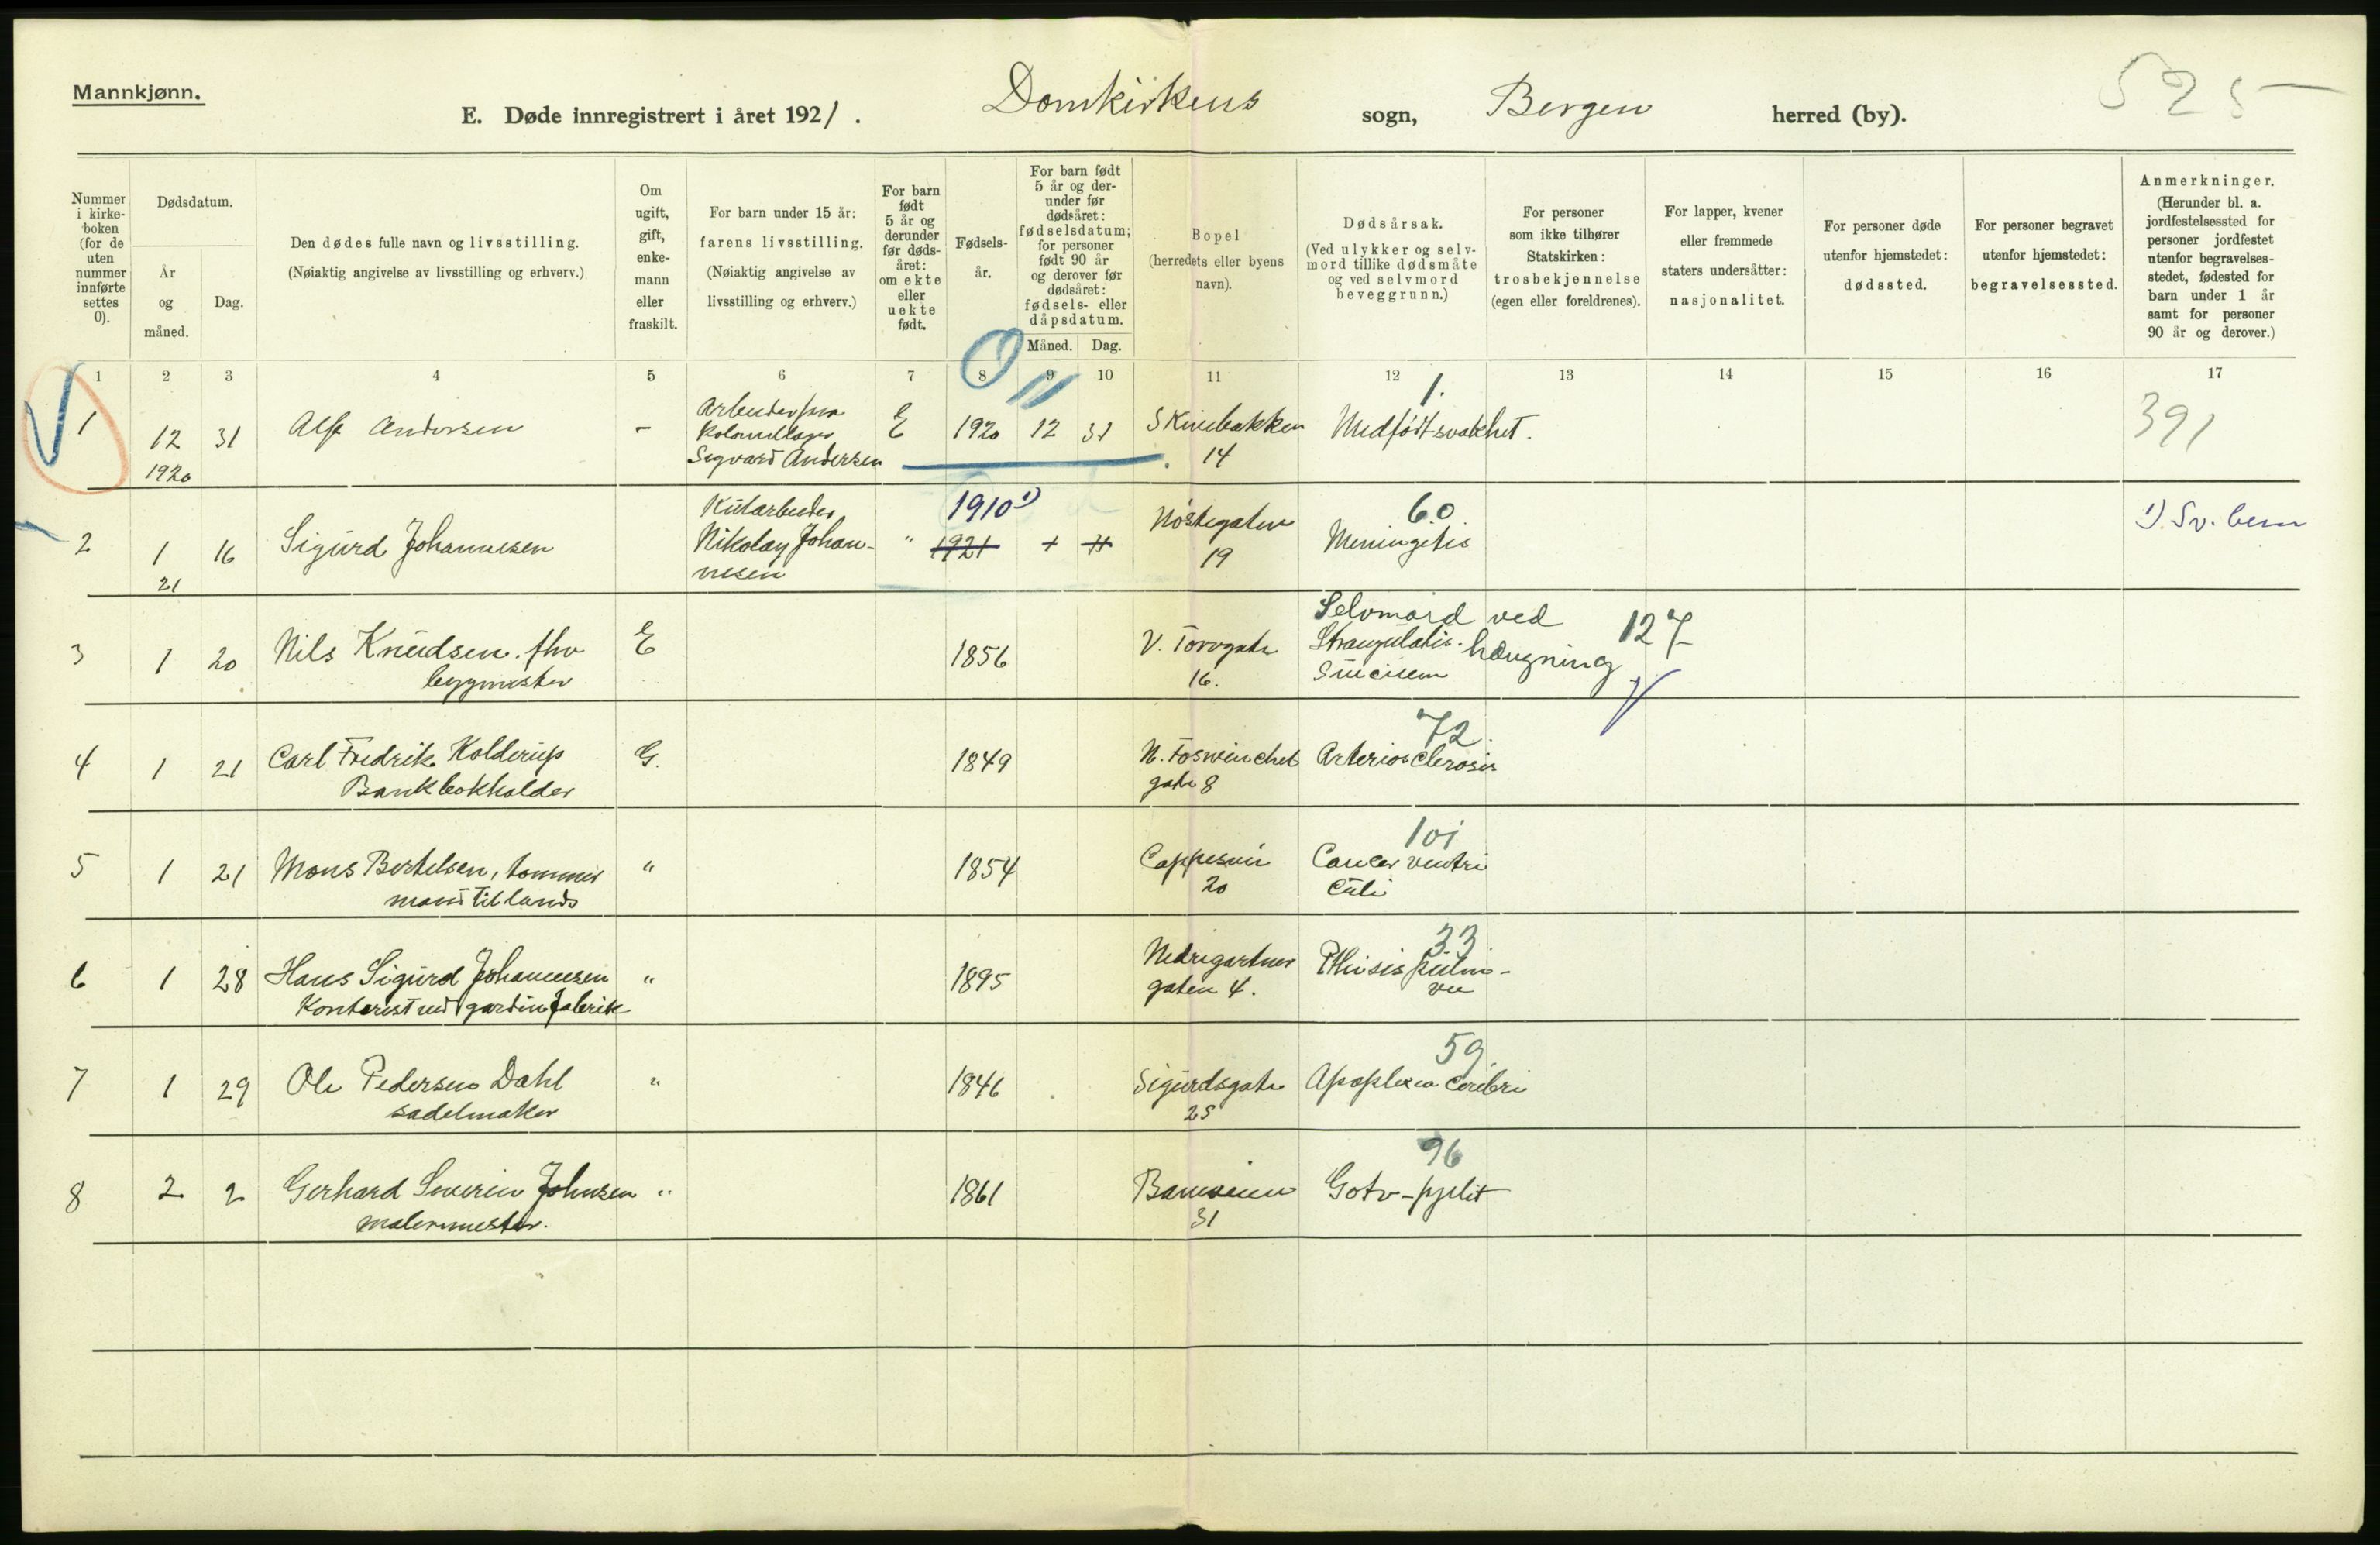 Mannkjønn.
E. Døde innregistrert i året 1921. Domkirkens sogn, Bergen herred (by).
525
Nummer i kirke-boken (for de uten nummer innførte settes 0).
Dødsdatum.
År og måned.
Dag.
Den dødes fulle navn og livsstilling.
(Nøiaktig angivelse av livsstilling og erhverv.)
Om ugift, gift, enke-mann eller fraskilt.
For barn under 15 år:
farens livsstilling.
(Nøiaktig angivelse av livsstilling og erhverv.)
For barn født 5 år og derunder før døds-året: om ekte eller uekte født.
Fødsels-år.
For barn født 5 år og der-under før dødsåret: fødselsdatum; for personer født 90 år og derover før dødsåret: fødsels- eller dåpsdatum.
Måned. Dag.
Bopel
(herredets eller byens navn).
Dødsårsak.
(Ved ulykker og selv-mord tillike dødsmåte og ved selvmord beveggrunn.)
For personer som ikke tilhører Statskirken:
trosbekjennelse
(egen eller foreldrenes).
For lapper, kvener eller fremmede staters undersåtter:
nasjonalitet.
For personer døde utenfor hjemstedet:
dødssted.
For personer begravet utenfor hjemstedet:
begravelsessted.
Anmerkninger.
(Herunder bl. a. jordfestelsessted for personer jordfestet utenfor begravelses-stedet, fødested for barn under 1 år samt for personer 90 år og derover.)
1 2 3 4 5 6 7 8 9 10 11 12 13 14 15 16 17
1.
1 12 31 Alf Andersen - E 1920 12 31 Skivebakken Medfødt svakhet. 391
1920 Sigvard Andersen 14
1910 1) 60 1) Sv. bem
2 1 16 Sigurd Johannesen Nikolay Johan- " 1921 Nøstegaten Meningitis
21 nesen 19
Selvmord ved 127
3 1 20 Nils Knudsen. fhv E 1856 V. Torvgate Strangulatio. hængning
byggmester 16.
72
4 1 21 Carl Fredrik Kolderup G. 1849 Arteriosclerosis
Bankbokholder gate 8
101
5 1 21 Mons Bertelsen, tømmer " 1854 20 Cancer ventri
mand til lands culi
33
6 1 28 Hans Sigurd Johannesen " 1895 Nedregartner Phtisis pulmo-
Kontorist ved gardinfabrik gaten 4.
59
7 1 29 Ole Pedersen Dahl " 1846 Sigurdsgate Apoplexia cerebri
sadelmaker 25
96
8 2 2 Gerhard Severin Johnsen " 1861
malermester. 31